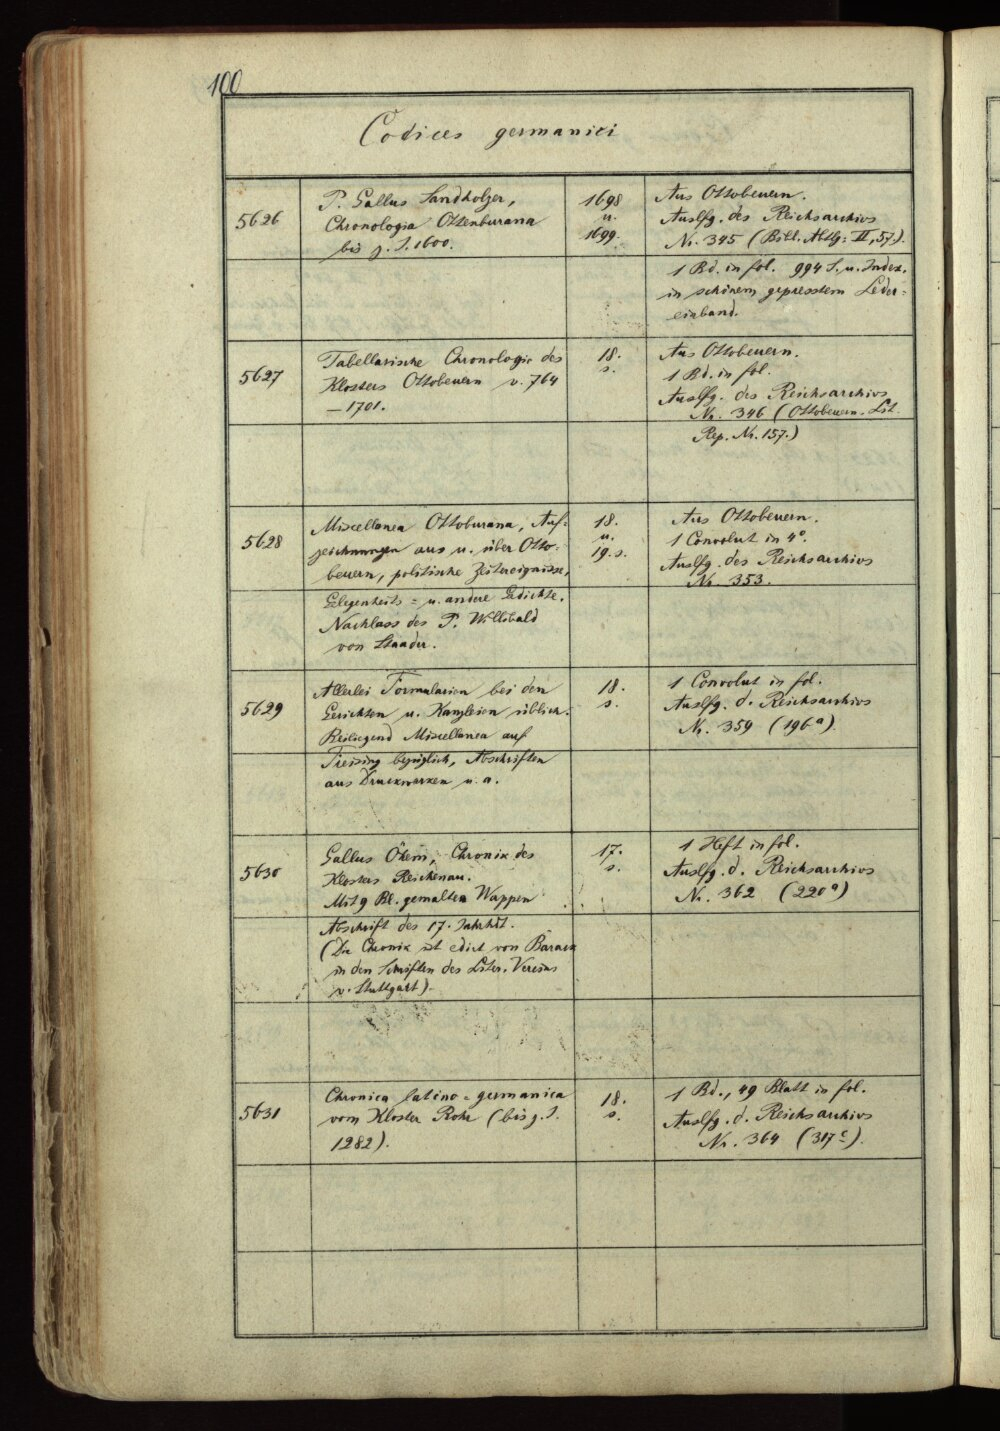 100
Codices germanici
5626
P. Gallus Sandholzer,
Chronologia Ottenburana
bis z. J. 1600.
1698
u.
1699.
Aus Ottobeuern.
Auslfg. des Reichsarchivs
Nr. 345 (Bibl. Abtlg: II, 57.).
1 Bd. in fol. 994 S. u. Index.
in schönem gepresstem Leder-
einband.
5627
Tabellarische Chronologie des
Klosters Ottobeuern v. 764
– 1701.
18.
s.
Aus Ottobeuern.
1 Bd. in fol.
Auslfg. des Reichsarchivs
Nr. 346 (Ottobeuern. Lit.
Rep. Nr. 157.)
5628
Miscellanea Ottoburana, Auf-
zeichnungen aus u. über Otto-
beuern, politische Zeitereignisse,
Gelegenheits- u. andere Gedichte.
Nachlass des P. Willibald
von Staader.
18.
u.
19. s.
Aus Ottobeuern.
1 Convolut in 4°.
Auslfg. des Reichsarchivs
Nr. 353.
5629
Allerlei Formularien bei den
Gerichten u. Kanzleien üblich.
Beiliegend Miscellanea auf
Freising bezüglich, Abschriften
aus Druckwerken u. a.
18.
s.
1 Convolut in fol.
Auslfg. d. Reichsarchivs
Nr. 359 (196ª).
5630
Gallus Öhem, Chronik des
Klosters Reichenau.
Mit 9 Bl. gemalten Wappen
Abschrift des 17. Jahrhdt.
(Die Chronik ist edirt von Barack
in den Schriften des Liter. Vereins
v. Stuttgart).
17.
s.
1 Heft in fol.
Auslfg. d. Reichsarchivs
Nr. 362 (220ª)
5631
Chronica latino-germanica
vom Kloster Rohr (bis z. J.
1282).
18.
s.
1 Bd., 49 Blatt in fol.
Auslfg. d. Reichsarchivs
Nr. 364 (317c).